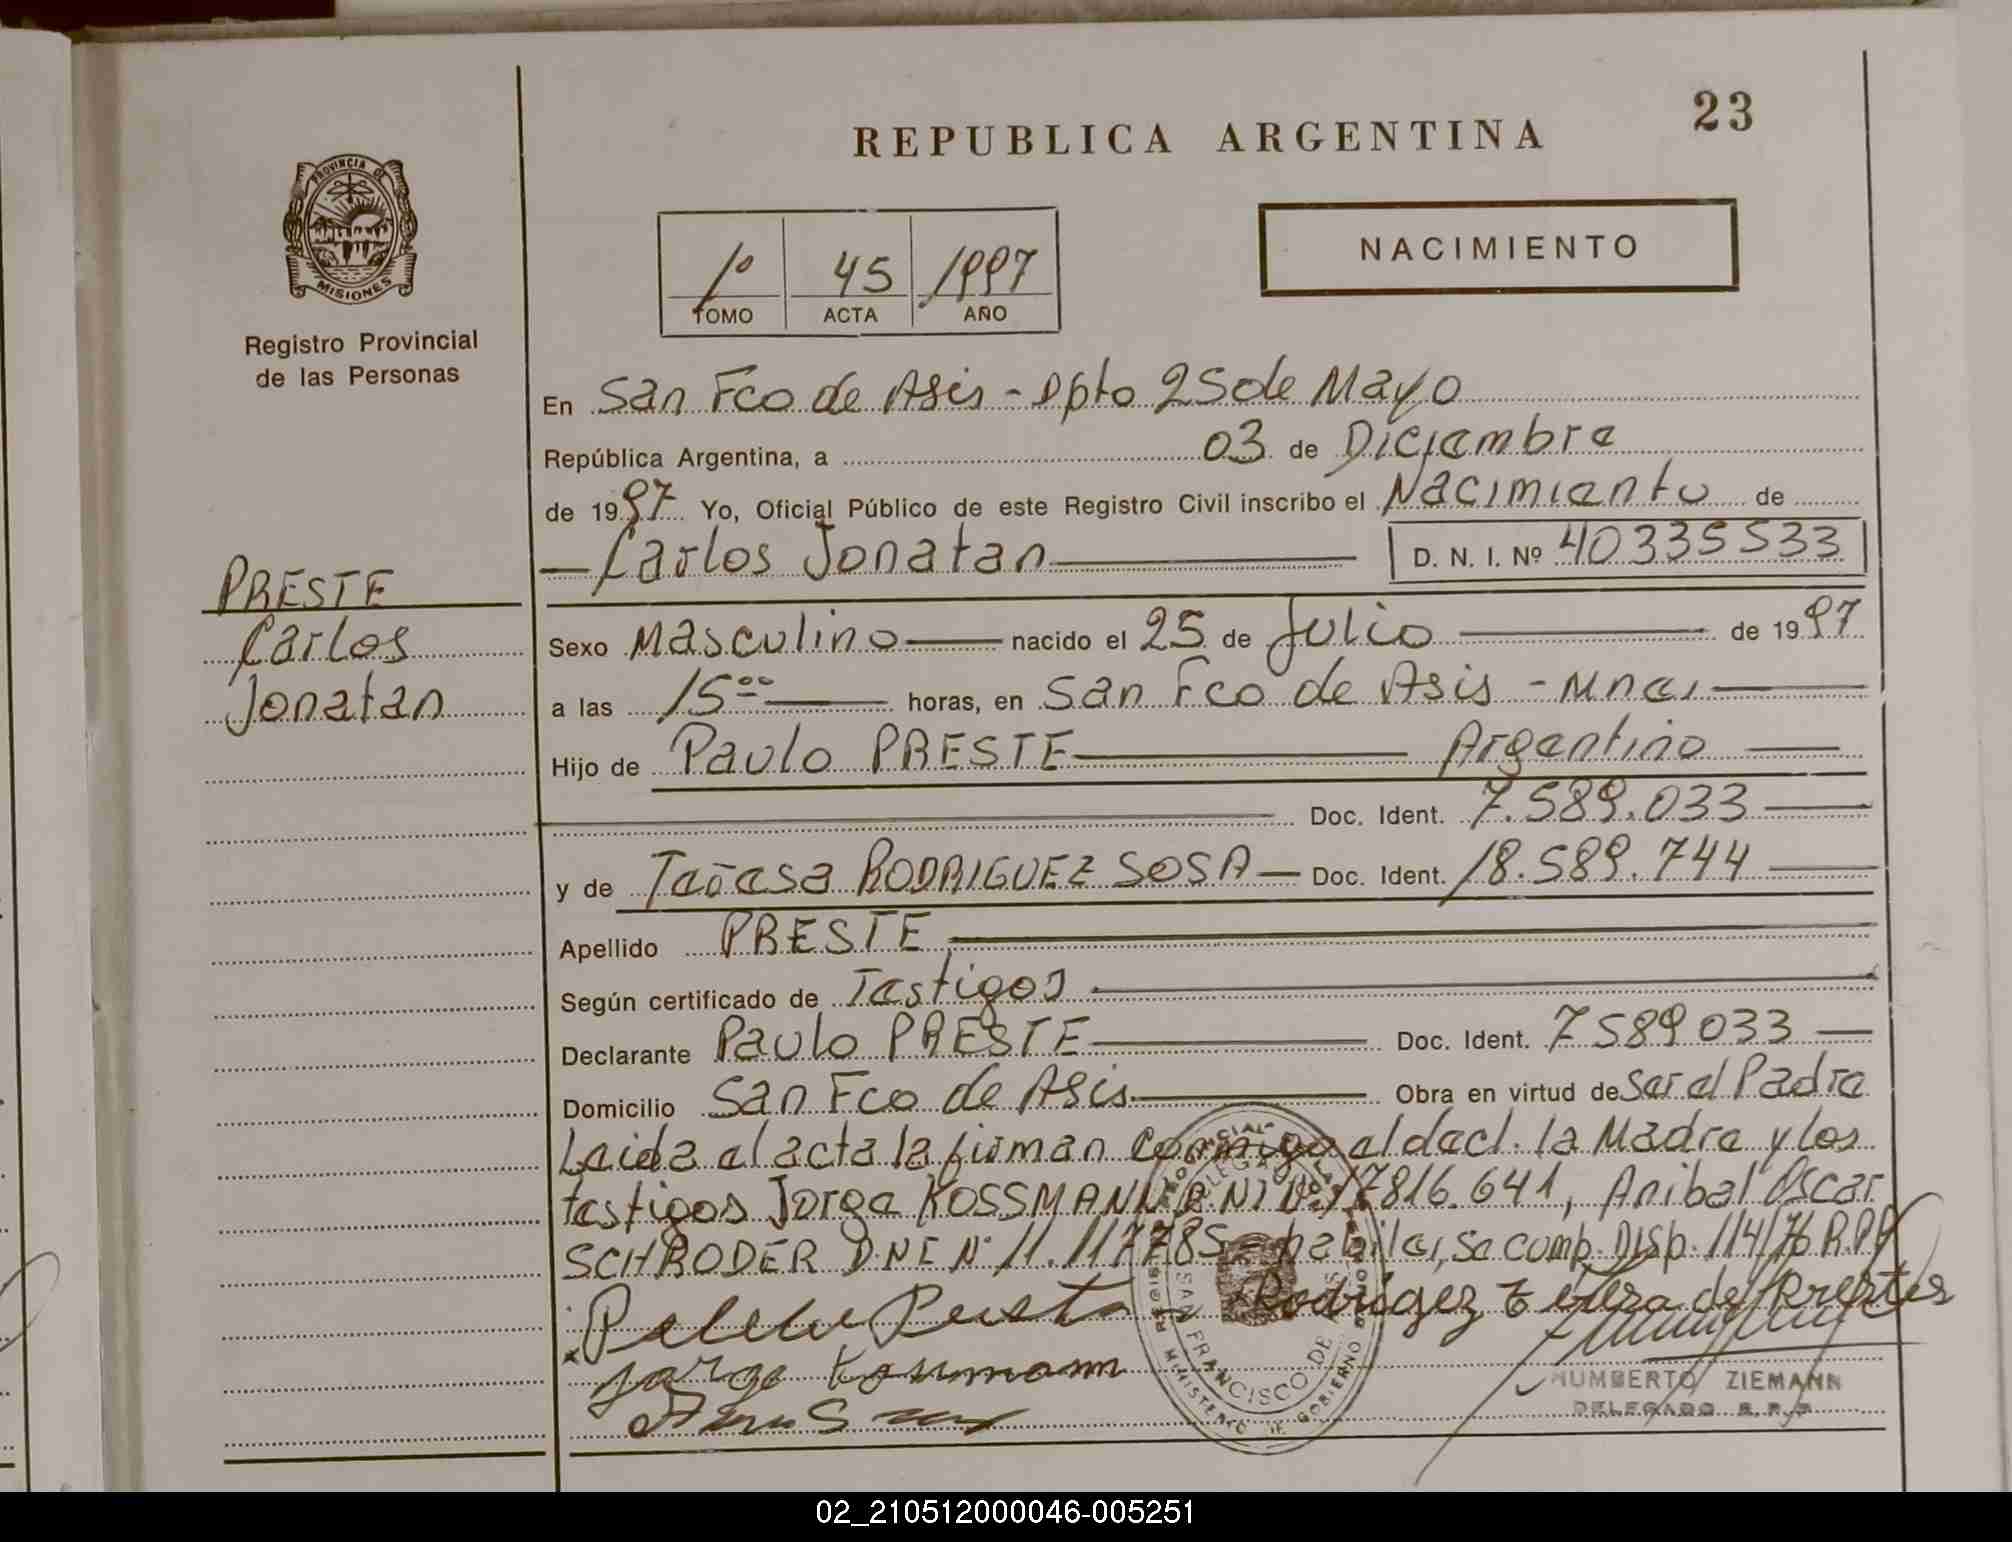 23
REPUBLICA ARGENTINA
PROVINCIA DE
MISIONES
Registro Provincial
de las Personas
1º 45 1997
TOMO ACTA AÑO
NACIMIENTO
En San Fco de Asis - Dpto 25 de Mayo
República Argentina, a 03 de Diciembre
de 1997 Yo, Oficial Público de este Registro Civil inscribo el Nacimiento de
Carlos Jonatan D. N. I. Nº 40335533
PRESTE
Carlos
Jonatan
Sexo Masculino nacido el 25 de Julio de 1997
a las 15ºº horas, en San Fco de Asis - Mnes
Hijo de Paulo PRESTE Argentino
Doc. Ident. 7.589.033
y de Teresa RODRIGUEZ SOSA Doc. Ident. 18.589.744
Apellido PRESTE
Según certificado de Testigos
Declarante Paulo PRESTE Doc. Ident. 7589033
Domicilio San Fco de Asis Obra en virtud de Ser el Padre
Leida el acta la firman conmigo el decl. la Madre y los
testigos Jorge KOSSMANN D.N.I Nº 17816.641, Anibal Oscar
SCHRODER DNI Nº 11.117785 - habiles, se comp. Disp. 114/76 R.P.P
Rodrigez Tereza de Prestes
Jorge Kossmann
SAN FRANCISCO DE ASIS
MINISTERIO DE GOBIERNO
HUMBERTO ZIEMANN
DELEGADO R.P.P
02_210512000046-005251